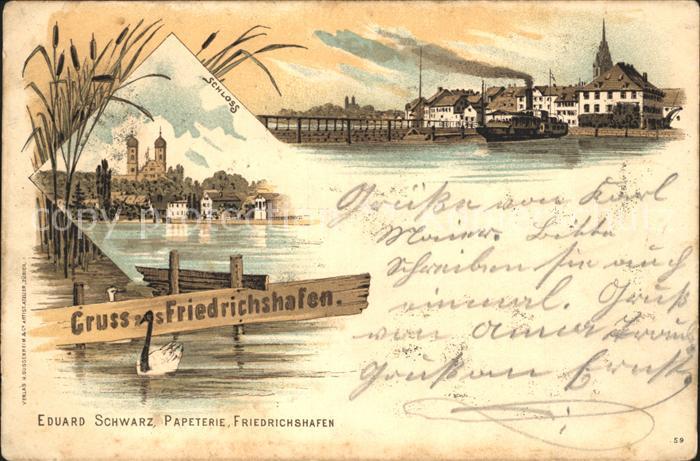 SCHLOSS
Gruss aus Friedrichshafen.
Grüße von Karl
Maier. Bitte
schreiben sie auch
einmal. Gruß
von
Gruß an Ernst.
VERLAG H. GUGGENHEIM & Co ARTIST. ATELIER, ZÜRICH.
EDUARD SCHWARZ, PAPETERIE, FRIEDRICHSHAFEN
59